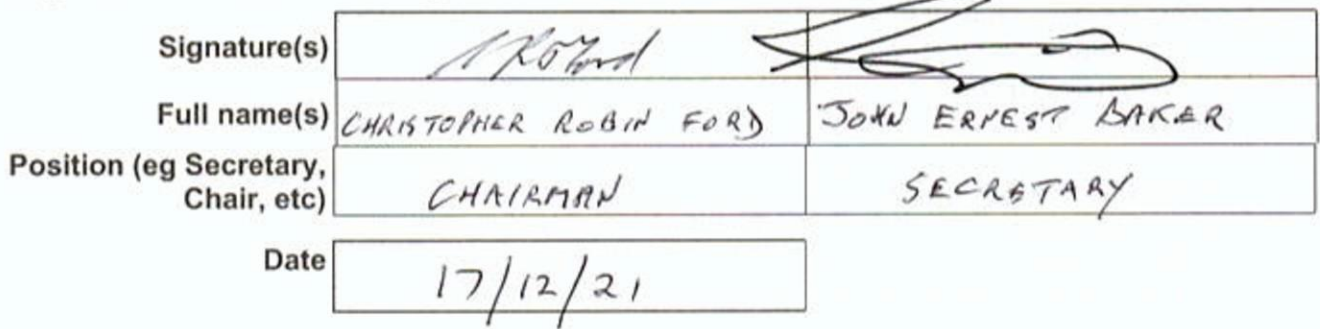 Signature(s)
Full name(s) CHRISTOPHER ROBIN FORD JOHN ERNEST BAKER
Position (eg Secretary,
Chair, etc) CHAIRMAN SECRETARY
Date 17/12/21